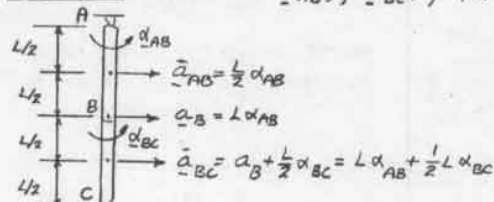 A
α_AB
L/2
ā_AB = L/2 α_AB
L/2
B
a_B = L α_AB
α_BC
L/2
ā_BC = a_B + L/2 α_BC = L α_AB + 1/2 L α_BC
L/2
C